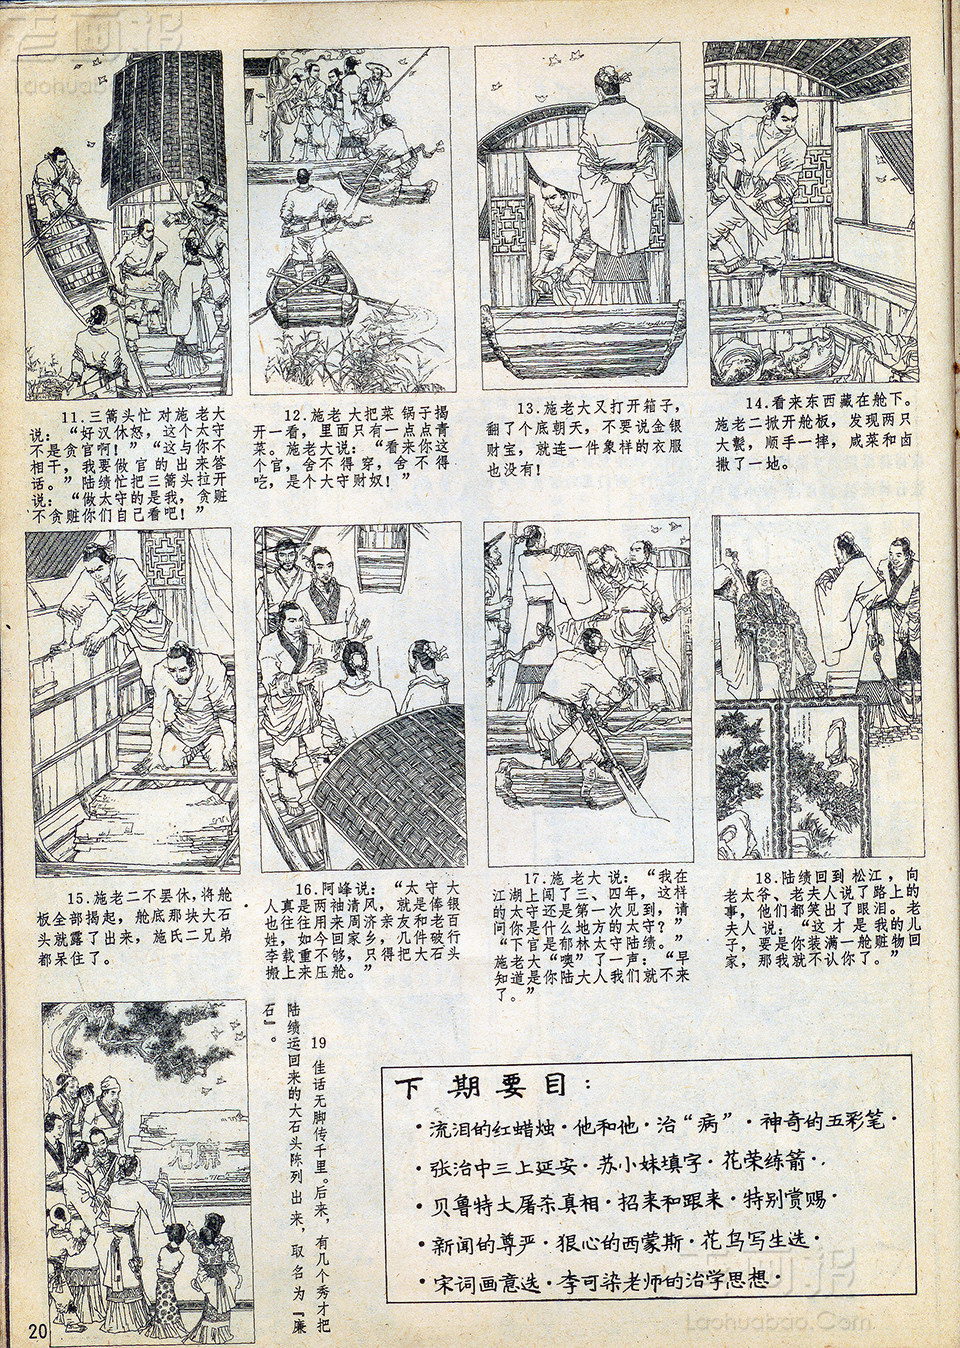 老画报
Laohuabao.Com
11.三篙头忙 对施 老大
说：“好汉休怒，这个太守
不是贪官啊！”“这与你不
相干，我要做官的出来答
话。”陆绩忙把三篙头拉开
说：“做太守的是我，贪赃
不贪赃你们自己看吧！”
12.施老 大把菜 锅子揭
开一看，里面只有一点点青
菜。施老大说：“看来你这
个官，舍不得穿，舍不得
吃，是个大守财奴！”
13.施老大又打开箱子，
翻了个底朝天，不要说金银
财宝，就连一件象样的衣服
也没有！
14.看来东西藏在舱下。
施老二掀开舱板，发现两只
大甏，顺手一摔，咸菜和卤
撒了一地。
15.施老二不罢休，将舱
板全部揭起，舱底那块大石
头就露了出来，施氏二兄弟
都呆住了。
16.阿峰说：“太守大
人真是两袖清风，就是俸银
也往往用来周济亲友和老百
姓，如今回家乡，几件破行
李载重不够，只得把大石头
搬上来压舱。”
17.施 老大 说：“我在
江湖上闯了三、四年，这样
的太守还是第一次见到，请
问你是什么地方的太守？”
“下官是郁林太守陆绩。”
施老大“噢”了一声：“早
知道是你陆大人我们就不来
了。”
18.陆绩回到 松江，向
老太爷、老夫人说了路上的
事，他们都笑出了眼泪。老
夫人说：“这才是我的儿
子，要是你装满一舱赃物回
家，那我就不认你了。”
廉石
19 佳话无脚传千里。后来，有几个秀才把
陆绩运回来的大石头陈列出来，取名为『廉
石』。
下期要目：
·流泪的红蜡烛·他和他·治“病”·神奇的五彩笔·
·张治中三上延安·苏小妹填字·花荣练箭·
·贝鲁特大屠杀真相·招来和跟来·特别赏赐·
·新闻的尊严·狠心的西蒙斯·花鸟写生选·
·宋词画意选·李可染老师的治学思想·
20
老画报
Laohuabao.Com